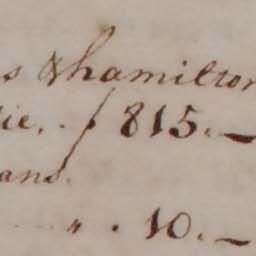 s & hamilton
tie. . ƒ 815. —
ans.
„ . 10. —